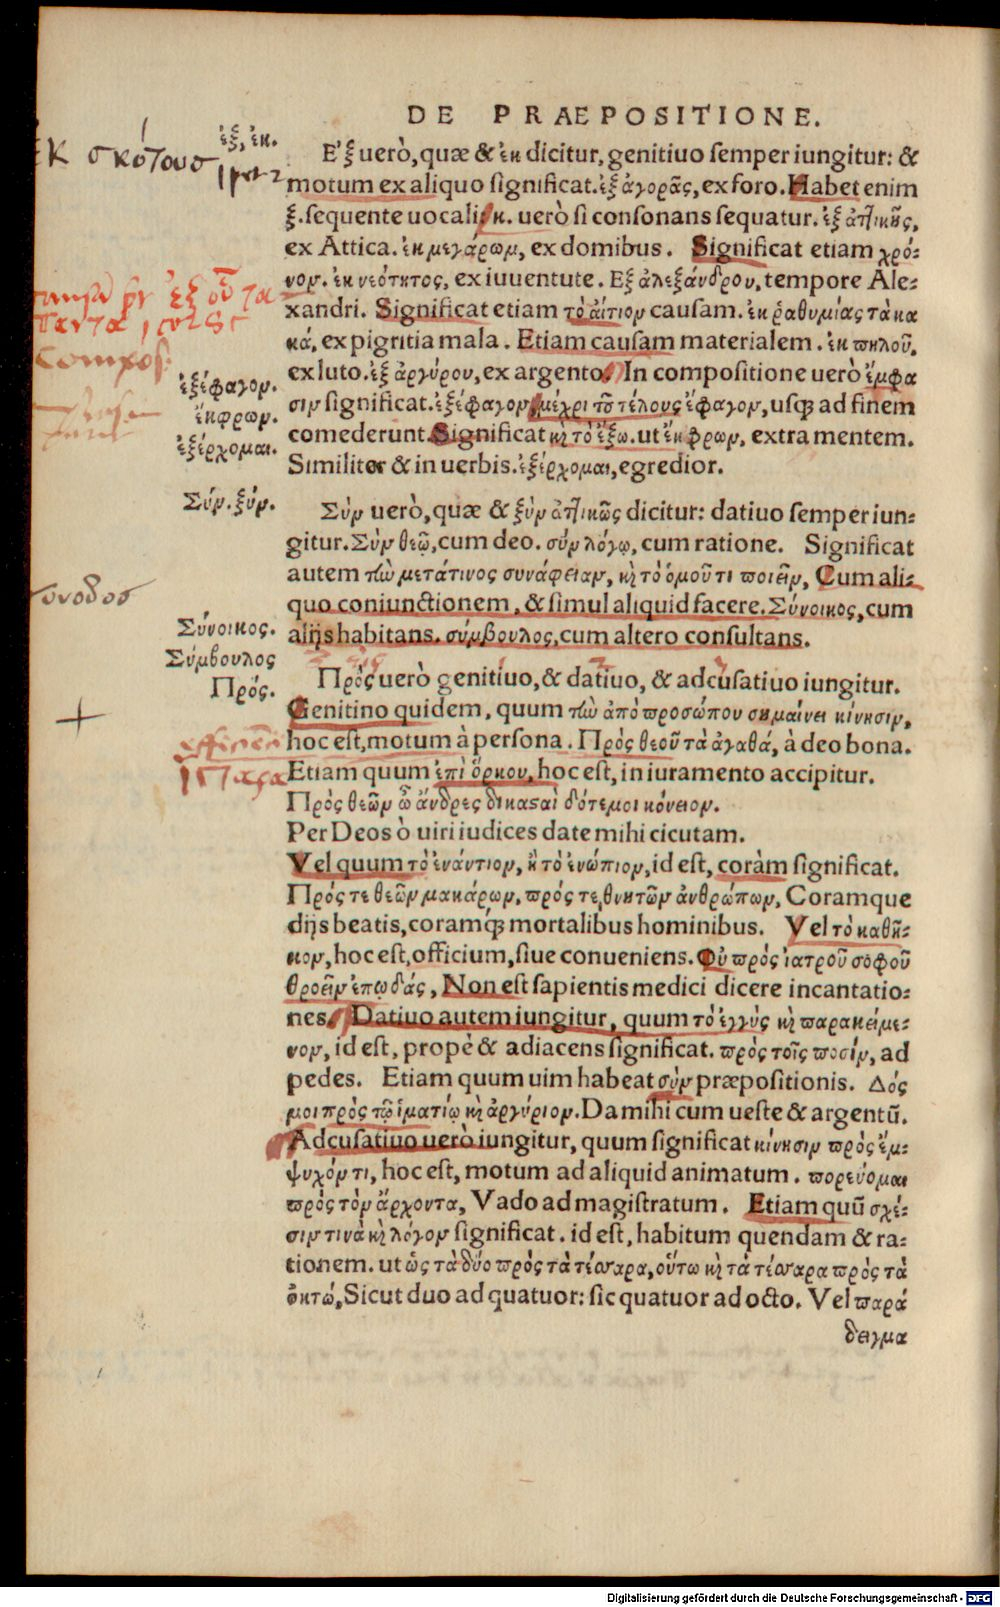 DE PRAEPOSITIONE.
ἐξ, ἐκ.
ἐκ σκότους
Ἐξ uerò, quæ & ἐκ dicitur, genitiuo semper iungitur: &
motum ex aliquo significat. ἐξ ἀγορᾶς, ex foro. Habet enim
ξ. sequente uocali, κ. uerò si consonans sequatur. ἐξ ἀττικῆς,
ex Attica. ἐκ μεγάρων, ex domibus. Significat etiam χρό-
νον. ἐκ νεότητος, ex iuuentute. Εξ ἀλεξάνδρου, tempore Ale-
xandri. Significat etiam τὸ αἴτιον causam. ἐκ ῥαθυμίας τὰ κα
κά, ex pigritia mala. Etiam causam materialem. ἐκ πηλοῦ,
ex luto. ἐξ ἀργύρου, ex argento. In compositione uerò ἔμφα
σιν significat. ἐξέφαγον, μέχρι τοῦ τέλους ἔφαγον, usq; ad finem
comederunt. Significat καὶ τὸ ἔξω. ut ἔκφρων, extra mentem.
Similiter & in uerbis. ἐξέρχομαι, egredior.
ἐξ οὗ τα
παντα
Compos:
ἐξέφαγον.
ἔκφρων.
ἐξέρχομαι.
Σύν. ξύν.
Σὺν uerò, quæ & ξὺν ἀττικῶς dicitur: datiuo semper iun-
gitur. Σὺν θεῷ, cum deo. σὺν λόγῳ, cum ratione. Significat
autem τὴν μετάτινος συνάφειαν, καὶ τὸ ὁμοῦ τι ποιεῖν, Cum ali-
quo coniunctionem, & simul aliquid facere. Σύνοικος, cum
alijs habitans. σύμβουλος, cum altero consultans.
συνοδοσ
Σύνοικος.
Σύμβουλος
Πρός.
Πρὸς uerò genitiuo, & datiuo, & adcusatiuo iungitur.
Genitino quidem, quum τὴν ἀπὸ προσώπου σημαίνει κίνησιν,
hoc est, motum à persona. Πρὸς θεοῦ τὰ ἀγαθά, à deo bona.
Etiam quum ἐπὶ ὅρκου, hoc est, in iuramento accipitur.
παρα
Πρὸς θεῶν ὦ ἄνδρες δικασαὶ δότεμοι κόνειον.
Per Deos ò uiri iudices date mihi cicutam.
Vel quum τὸ ἐνάντιον, ἢ τὸ ἐνώπιον, id est, coràm significat.
Πρός τε θεῶν μακάρων, πρός τε θνητῶν ἀνθρώπων, Coramque
dijs beatis, coramq; mortalibus hominibus. Vel τὸ καθῆ-
κον, hoc est, officium, siue conueniens. Οὐ πρὸς ἰατροῦ σοφοῦ
θροεῖν ἐπῳδάς, Non est sapientis medici dicere incantatio-
nes. Datiuo autem iungitur, quum τὸ ἐγγὺς καὶ παρακείμε-
νον, id est, propè & adiacens significat. πρὸς τοῖς ποσίν, ad
pedes. Etiam quum uim habeat σὺν præpositionis. Δός
μοι πρὸς τῷ ἱματίῳ καὶ ἀργύριον. Da mihi cum ueste & argentū.
Adcusatiuo uerò iungitur, quum significat κίνησιν πρὸς ἔμ-
ψυχόν τι, hoc est, motum ad aliquid animatum. πορεύομαι
πρὸς τὸν ἄρχοντα, Vado ad magistratum. Etiam quū σχέ-
σιν τινὰ καὶ λόγον significat. id est, habitum quendam & ra-
tionem. ut ὡς τὰ δύο πρὸς τὰ τέσσαρα, οὕτω καὶ τὰ τέσσαρα πρὸς τὰ
ὀκτώ, Sicut duo ad quatuor: sic quatuor ad octo. Vel παρά
δειγμα
Digitalisierung gefördert durch die Deutsche Forschungsgemeinschaft - DFG